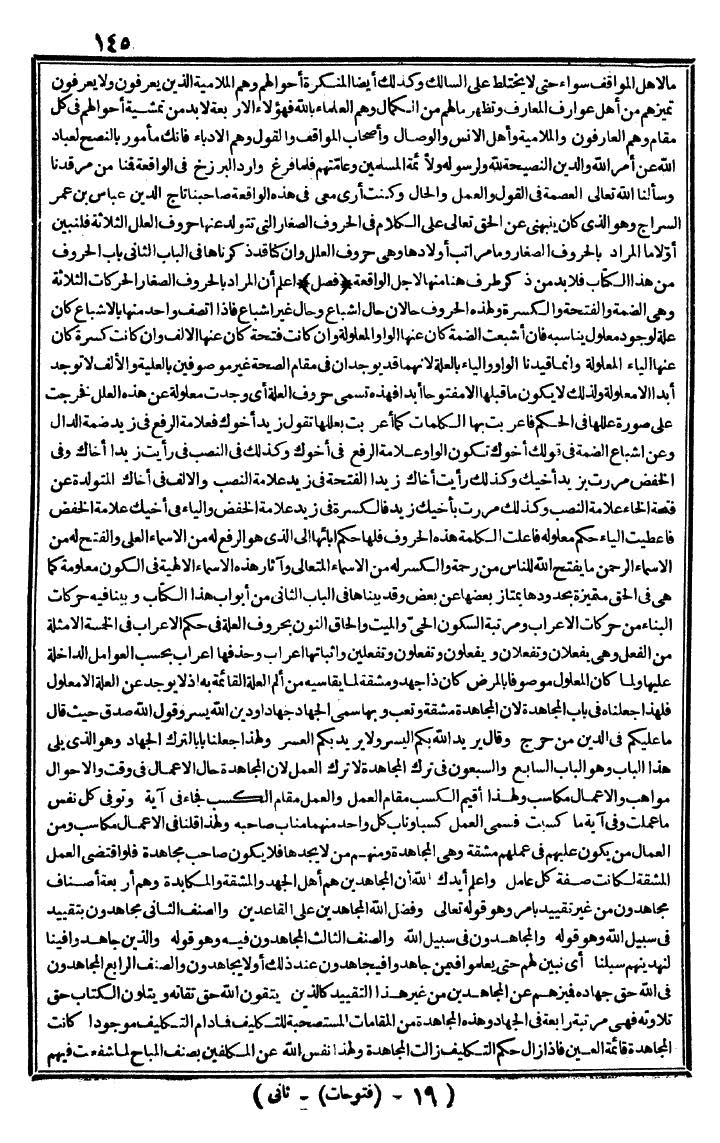 ١٤٥
مالاهل المواقف سواء حتى لا يختلط على السالك وكذلك أيضا المنكرة أحوالهم وهم الملامية الذين يعرفون ولا يعرفون
تميزهم من أهل عوارف المعارف وتظهر مالهم من الكمال وهم العلماء بالله فهؤلاء الاربعة لابد من تمشية أحوالهم فى كل
مقام وهم العارفون والملامية وأهل الانس والوصال وأصحاب المواقف والقول وهم الادباء فانك مأمور بالنصح لعباد
الله عن أمر الله والدين النصيحة لله ولرسوله ولأئمة المسلمين وعامّتهم فلما فرغ وارد البرزخ فى الواقعة قمنا من مرقدنا
وسألنا الله تعالى العصمة فى القول والعمل والحال وكنت أرى معى فى هذه الواقعة صاحبنا تاج الدين عباس بن عمر
السراج وهو الذى كان ينبهنى عن الحق تعالى على الكلام فى الحروف الصغار التى تتولد عنها حروف العلل الثلاثة فلنبين
أوّلا ما المراد بالحروف الصغار وما مراتب أولادها وهى حروف العلل وان كنا قد ذكرناها فى الباب الثانى باب الحروف
من هذا الكتاب فلابد من ذكر طرف هنا منها لاجل الواقعة ﴿فصل﴾ اعلم أن المراد بالحروف الصغار الحركات الثلاثة
وهى الضمة والفتحة والكسرة ولهذه الحروف حالان حال اشباع وحال غير اشباع فاذا اتصف واحد منها بالاشباع كان
علة لوجود معلول يناسبه فان أشبعت الضمة كان عنها الواو المعلولة وان كانت فتحة كان عنها الالف وان كانت كسرة كان
عنها الياء المعلولة وانما قيدنا الواو والياء بالعلة لانهما قد يوجدان فى مقام الصحة غير موصوفين بالعلية والألف لا توجد
أبدا الا معلولة ولذلك لا يكون ما قبلها الا مفتوحا أبدا فهذه تسمى حروف العلة أى وجدت معلولة عن هذه العلل خرجت
على صورة عللها فى الحكم فاعربت بها الكلمات كما أعربت بعللها تقول زيد أخوك فعلامة الرفع فى زيد ضمة الدال
وعن اشباع الضمة فى قولك أخوك تكون الواو علامة الرفع فى أخوك وكذلك فى النصب فى رأيت زيدا أخاك وفى
الخفض مررت بزيد أخيك وكذلك رأيت أخاك زيدا الفتحة فى زيد علامة النصب والالف فى أخاك المتولدة عن
فتحة الخاء علامة النصب وكذلك مررت بأخيك زيد فالكسرة فى زيد علامة الخفض والياء فى أخيك علامة الخفض
فاعطيت الياء حكم معلوله فاعلت الكلمة هذه الحروف فلها حكم ابائها الى الذى هو الرفع له من الاسماء العلى والفتح له من
الاسماء الرحمن ما يفتح الله للناس من رحمة والكسر له من الاسماء المتعالى وآثار هذه الاسماء الالهية فى الكون معلومة كما
هى فى الحق متميزة بحدودها يمتاز بعضها عن بعض وقد بيناها فى الباب الثانى من أبواب هذا الكتاب وبينا فيه حركات
البناء من حركات الاعراب ومرتبة السكون الحىّ والميت والحاق النون بحروف العلة فى حكم الاعراب فى الخمسة الامثلة
من الفعل وهى يفعلان وتفعلان ويفعلون وتفعلون وتفعلين واثباتها اعراب وحذفها اعراب بحسب العوامل الداخلة
عليها ولما كان المعلول موصوفا بالمرض كان ذا جهد ومشقة لما يقاسيه من ألم العلة القائمة به اذ لا يوجد عن العلة الا معلول
فلهذا جعلناه فى باب المجاهدة لان المجاهدة مشقة وتعب وبها سمى الجهاد جهادا ودين الله يسر وقول الله صدق حيث قال
ما عليكم فى الدين من حرج وقال يريد الله بكم اليسر ولا يريد بكم العسر ولهذا جعلنا بابا لترك الجهاد وهو الذى يلى
هذا الباب وهو الباب السابع والسبعون فى ترك المجاهدة لا ترك العمل لان المجاهدة حال الاعمال فى وقت والاحوال
مواهب والاعمال مكاسب ولهذا أقيم الكسب مقام العمل والعمل مقام الكسب فجاء فى آية وتوفى كل نفس
ما عملت وفى آية ما كسبت فسمى العمل كسبا وناب كل واحد منهما مناب صاحبه ولهذا قلنا فى الاعمال مكاسب ومن
العمال من يكون عليهم فى عملهم مشقة وهى المجاهدة ومنهم من لا يجدها فلا يكون صاحب مجاهدة فلو اقتضى العمل
المشقة لكانت صفة كل عامل واعلم أيدك الله أن المجاهدين هم أهل الجهد والمشقة والمكابدة وهم أربعة أصناف
مجاهدون من غير تقييد بامر وهو قوله تعالى وفضل الله المجاهدين على القاعدين والصنف الثانى مجاهدون بتقييد
فى سبيل الله وهو قوله والمجاهدون فى سبيل الله والصنف الثالث المجاهدون فيه وهو قوله والذين جاهدوا فينا
لنهدينهم سبلنا أى نبين لهم حتى يعلموا فيمن جاهدوا فيجاهدون عند ذلك أو لا يجاهدون والصنف الرابع المجاهدون
فى الله حق جهاده فميزهم عن المجاهدين من غير هذا التقييد كالذين يتقون الله حق تقاته ويتلون الكتاب حق
تلاوته فهى مرتبة رابعة فى الجهاد وهذه المجاهدة من المقامات المستصحبة للتكليف فادام التكليف موجودا كانت
المجاهدة قائمة العين فاذا زال حكم التكليف زالت المجاهدة ولهذا نفس الله عن المكلفين بصنف المباح لما شفعت فيهم
( ١٩ - (فتوحات) - ثانى )